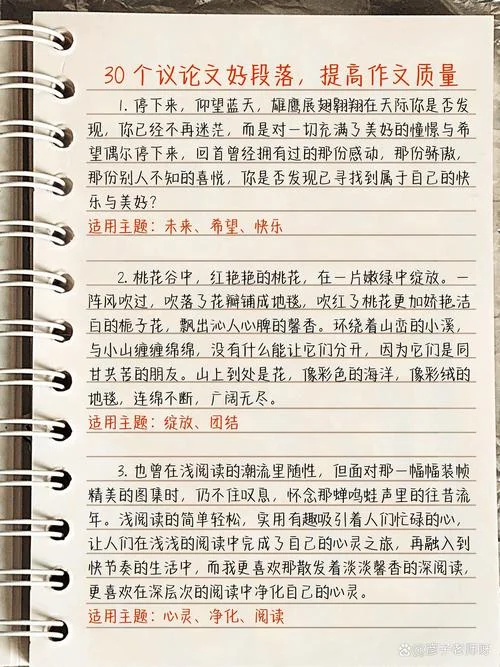 30个议论文好段落，提高作文质量
1. 停下来，仰望蓝天，雄鹰展翅翱翔在天际你是否发
现，你已经不再迷茫，而是对一切充满了美好的憧憬与希
望偶尔停下来，回首曾经拥有过的那份感动，那份骄傲，
那份别人不知的喜悦，你是否发现已寻找到属于自己的快
乐与美好？
适用主题：未来、希望、快乐
2. 桃花谷中，红艳艳的桃花，在一片嫩绿中绽放。一
阵风吹过，吹落了花瓣铺成地毯，吹红了桃花更加娇艳.洁
白的栀子花，飘出沁人心脾的馨香。环绕着山峦的小溪，
与小山缠缠绵绵，没有什么能让它们分开，因为它们是同
甘共苦的朋友。山上到处是花，像彩色的海洋，像彩绒的
地毯，连绵不断，广阔无尽。
适用主题：绽放、团结
3. 也曾在浅阅读的潮流里随性，但面对那一幅幅装帧
精美的图集时，仍不住叹息，怀念那蝉鸣蛙声里的往昔流
年。浅阅读的简单轻松，实用有趣吸引着人们忙碌的心，
让人们在浅浅的阅读中完成了自己的心灵之旅，再融入到
快节奏的生活中，而我更喜欢那散发着淡淡馨香的深阅读，
更喜欢在深层次的阅读中净化自己的心灵。
适用主题：心灵、净化、阅读
@彦子老师呀